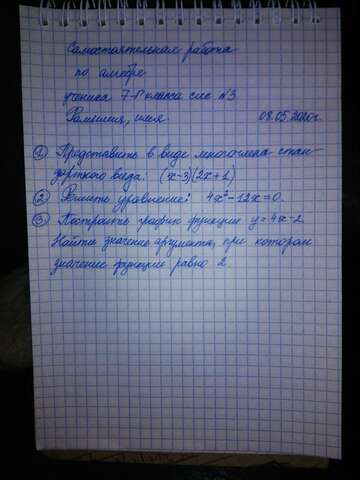 Самостоятельная работа
по алгебре
ученика 7-Г класса сш №3
Фамилия, имя. 08.05.2020г.
① Представить в виде многочлена стан-
дартного вида: (x-3)(2x+1)
② Решить уравнение: 4x²-12x=0.
③ Построить график функции y=4x-2.
Найти значение аргумента, при котором
значение функции равно 2.